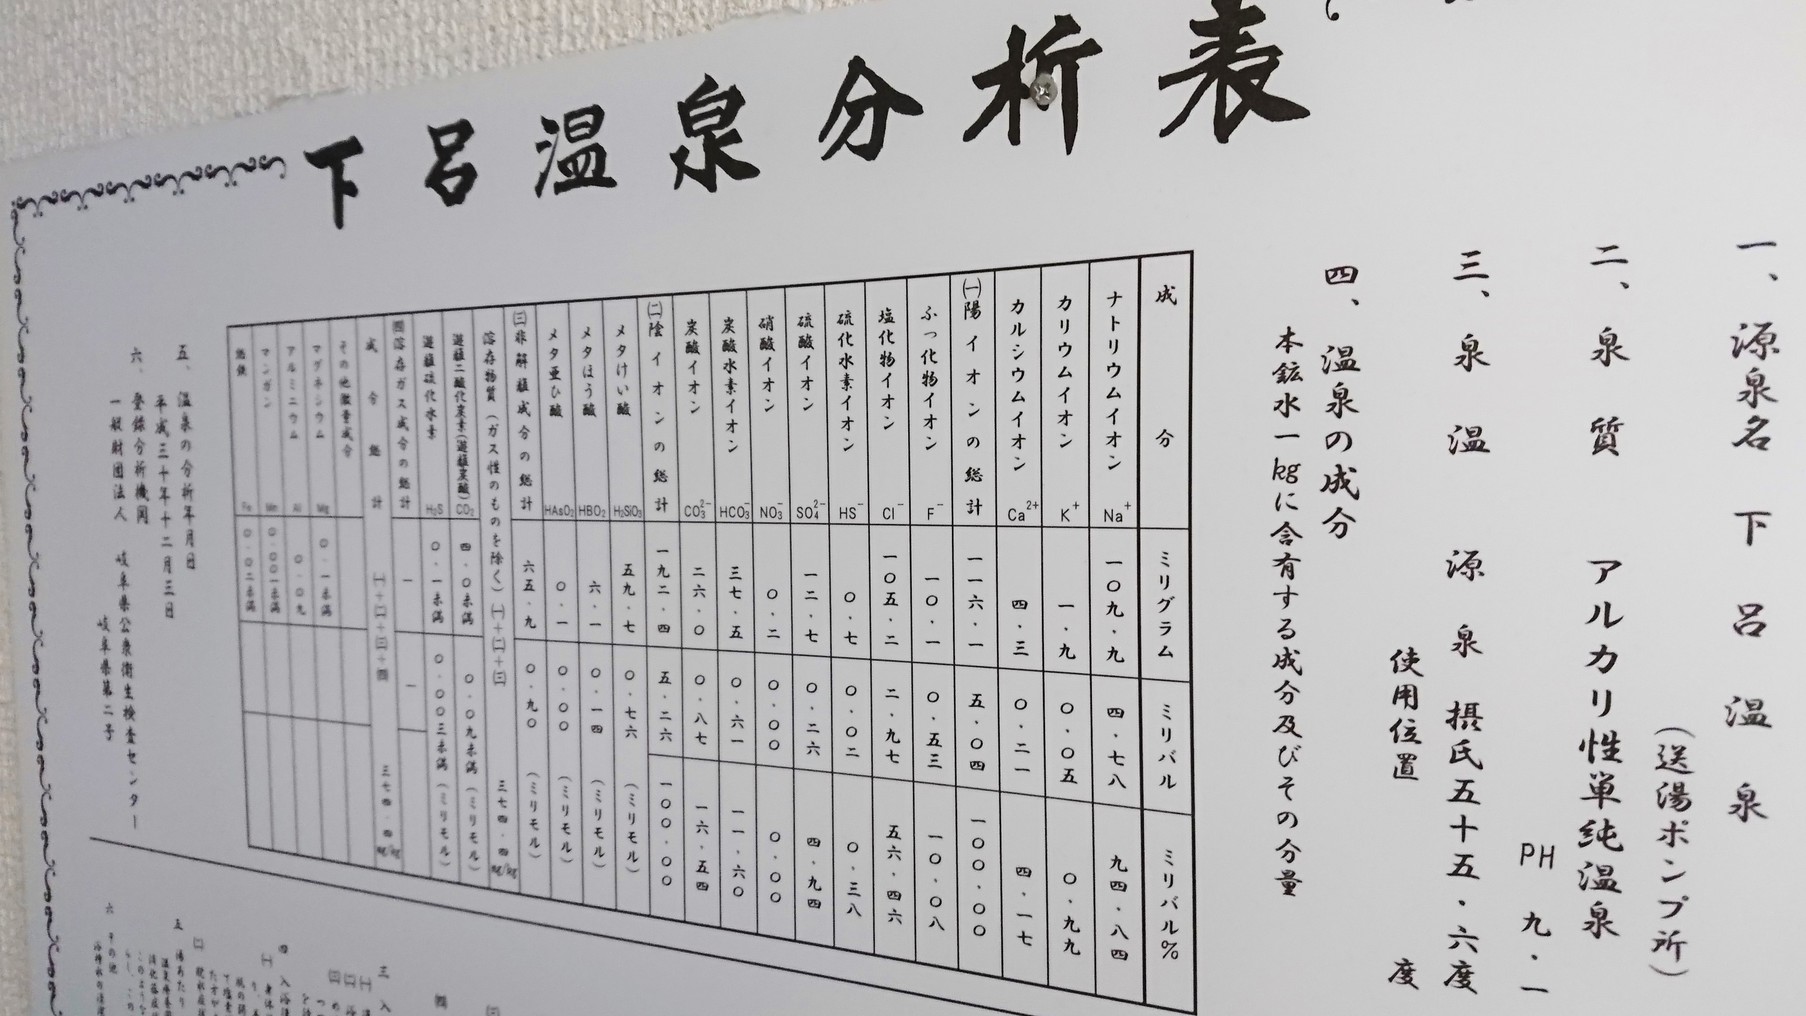 下呂温泉分析表
一、源泉名 下呂温泉
(送湯ポンプ所)
二、泉質 アルカリ性単純温泉
PH 九・一
三、泉温 源泉 摂氏五十五・六度
使用位置 度
四、温泉の成分
本鉱水一kgに含有する成分及びその分量
成分 ミリグラム ミリバル ミリバル%
ナトリウムイオン Na⁺ 一〇九・九 四・七八 九四・八四
カリウムイオン K⁺ 一・九 〇・〇五 〇・九九
カルシウムイオン Ca²⁺ 四・三 〇・二一 四・一七
㈠陽イオンの総計 一一六・一 五・〇四 一〇〇・〇〇
ふっ化物イオン F⁻ 一〇・一 〇・五三 一〇・〇八
塩化物イオン Cl⁻ 一〇五・二 二・九七 五六・四六
硫化水素イオン HS⁻ 〇・七 〇・〇二 〇・三八
硫酸イオン SO₄²⁻ 一二・七 〇・二六 四・九四
硝酸イオン NO₃⁻ 〇・二 〇・〇〇 〇・〇〇
炭酸水素イオン HCO₃⁻ 三七・五 〇・六一 一一・六〇
炭酸イオン CO₃²⁻ 二六・〇 〇・八七 一六・五四
㈡陰イオンの総計 一九二・四 五・二六 一〇〇・〇〇
メタけい酸 H₂SiO₃ 五九・七 〇・七六 (ミリモル)
メタほう酸 HBO₂ 六・一 〇・一四 (ミリモル)
メタ亜ひ酸 HAsO₂ 〇・一 〇・〇〇 (ミリモル)
㈢非解離成分の総計 六五・九 〇・九〇 (ミリモル)
溶存物質(ガス性のものを除く) ㈠+㈡+㈢ 三七四・四 mg/kg
遊離二酸化炭素(遊離炭酸) CO₂ 四・〇未満 〇・〇九未満 (ミリモル)
遊離硫化水素 H₂S 〇・一未満 〇・〇〇三未満 (ミリモル)
㈣溶存ガス成分の総計 ー ー
成分総計 ㈠+㈡+㈢+㈣ 三七四・四 mg/kg
その他微量成分
マグネシウム Mg 〇・一未満
アルミニウム Al 〇・〇九
マンガン Mn 〇・〇〇一未満
総鉄 Fe 〇・〇二未満
五、温泉の分析年月日
平成三十年十二月三日
六、登録分析機関
一般財団法人 岐阜県公衆衛生検査センター
岐阜県第二号